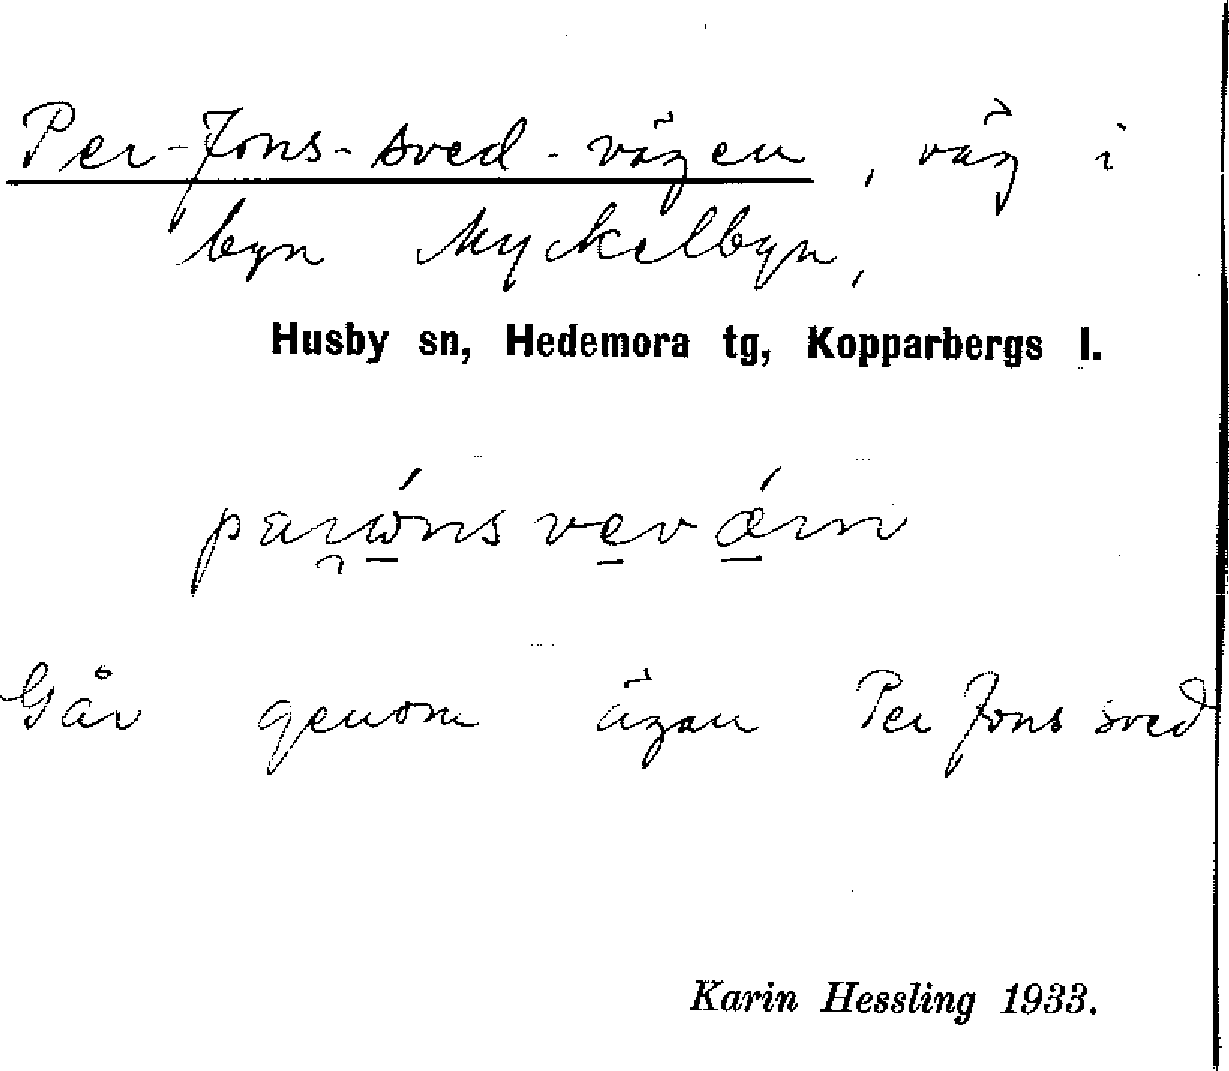 Per-Jons-sved-vägen, väg i
byn Myckelbyn,
Husby sn, Hedemora tg, Kopparbergs l.
Går genom ägan Per Jons sved
Karin Hessling 1933.